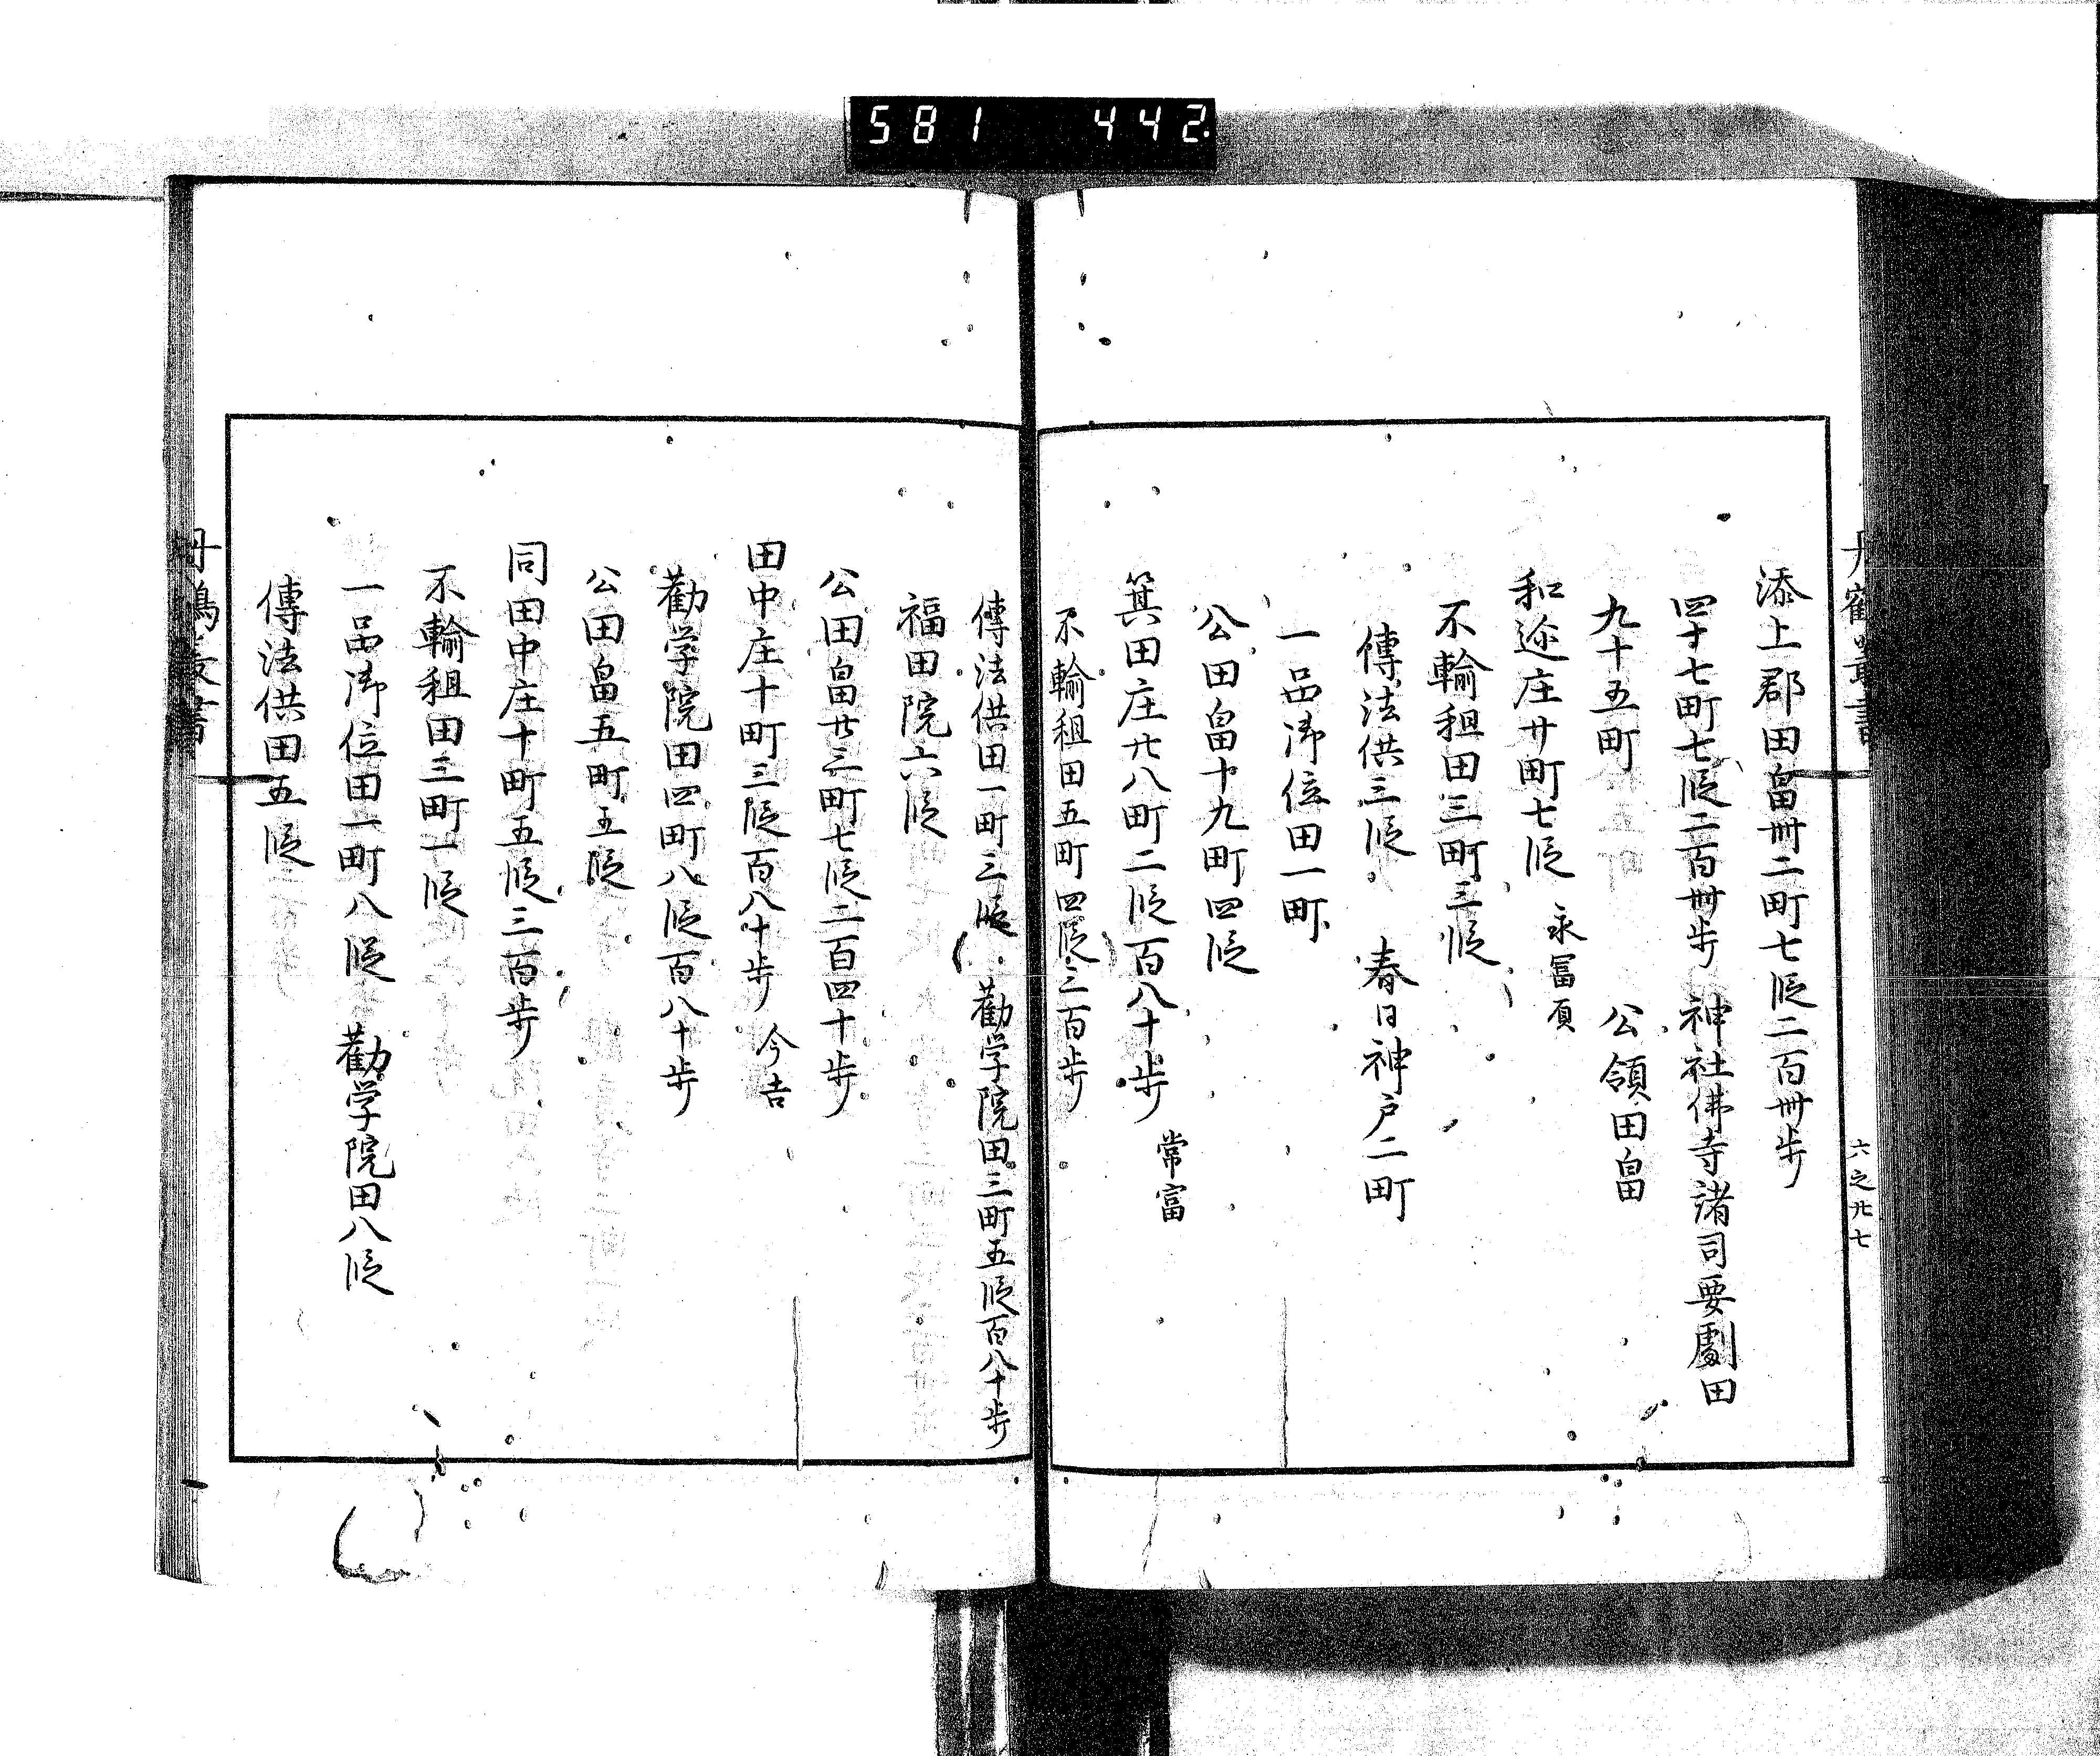 581 442
丹鶴叢書
六之廿七
添上郡田畠卌二町七段二百卌歩
四十七町七段二百卌歩 神社佛寺諸司要劇田
九十五町 公領田畠
和迩庄廿町七段 永冨頁
不輸租田三町三段
傳法供三段 春日神戸二町
一品御位田一町
公田畠十九町四段
箕田庄廿八町二段百八十歩 常富
不輸租田五町四段三百歩
傳法供田一町三段 勸学院田三町五段百八十歩
福田院六段
公田畠廿三町七段二百四十歩
田中庄十町三段百八十歩 今吉
勸学院田四町八段百八十歩
公田畠五町五段
同田中庄十町五段三百歩
不輸租田三町一段
一品御位田一町八段 勸学院田八段
傳法供田五段